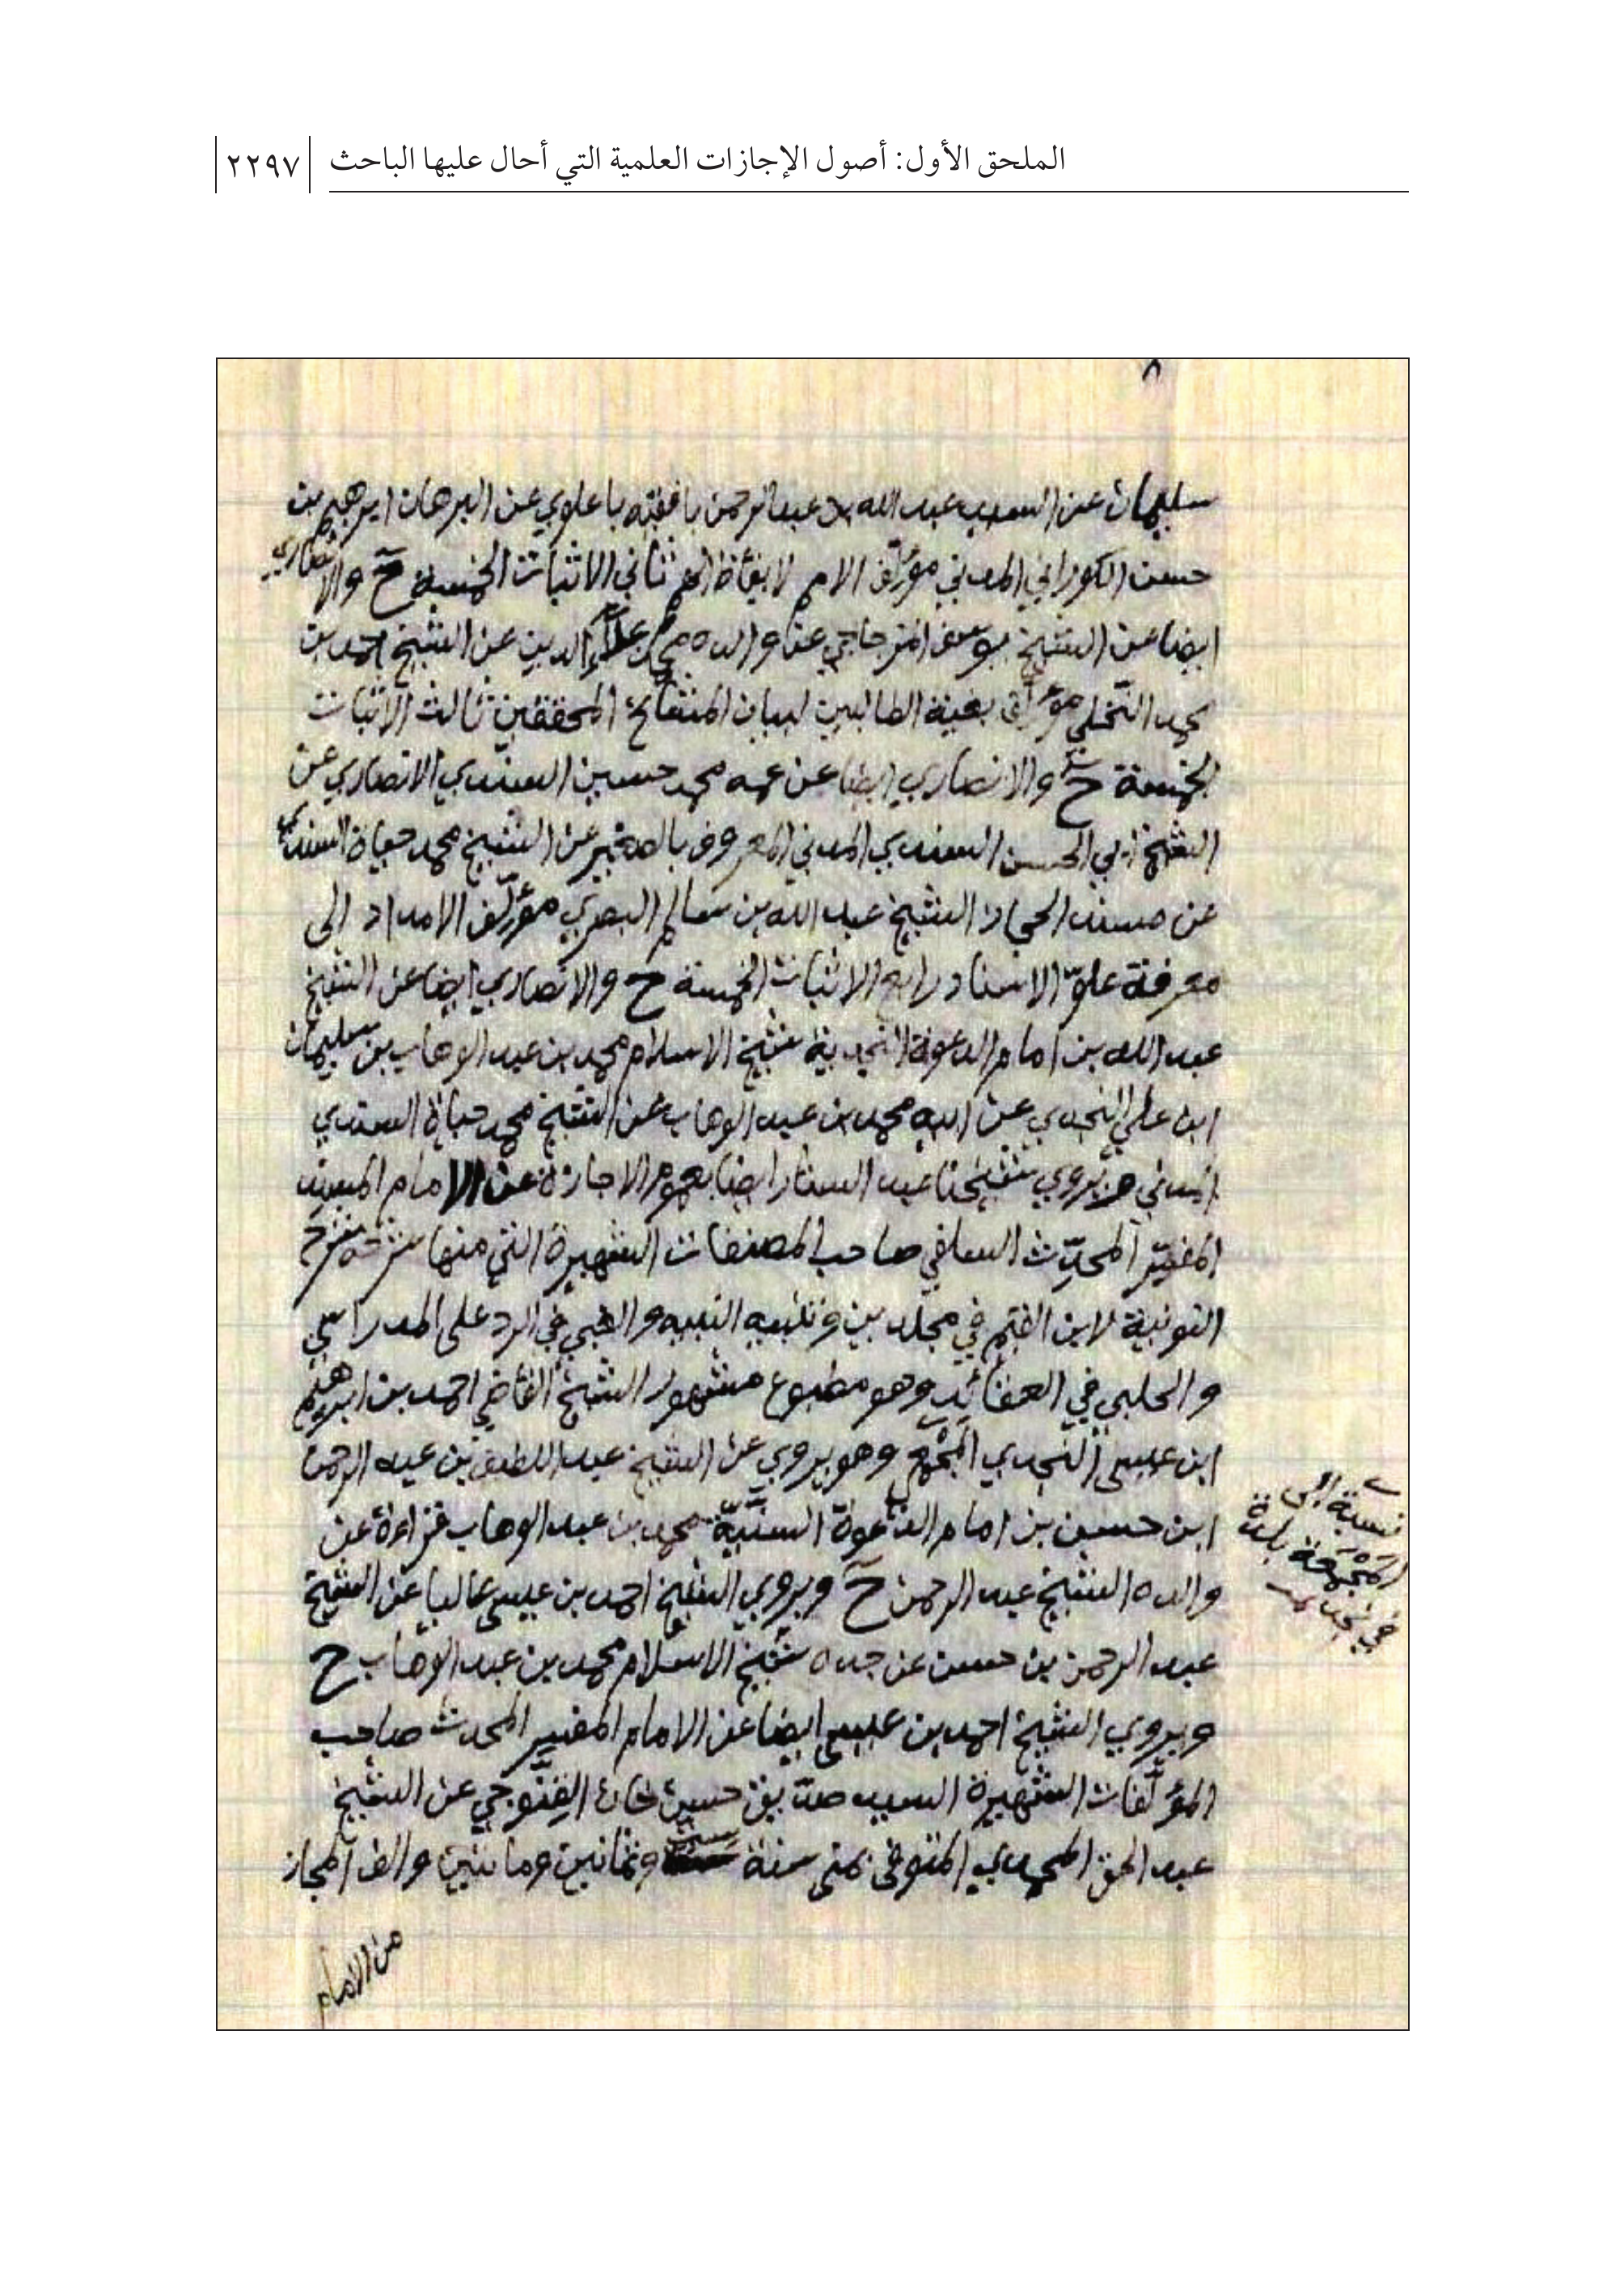 الملحق الأول: أصول الإجازات العلمية التي أحال عليها الباحث
٢٢٩٧
٨
سليمان عن السيد عبد الله بن عبد الرحمن بافقيه باعلوي عن البرهان ابرهيم بن
حسن الكوراني المدني مؤلّف الامم لايقاظ الهمم ثاني الاثبات الخمسة ح والانصاري
ايضا عن الشيخ يوسف المزجاجي عن والده محمد علاء الدين عن الشيخ احمد بن
محمد النخلي مؤلف بغية الطالبين لبيان المشائخ المحققين ثالث الاثبات
الخمسة ح والانصاري ايضا عن عمه محمد حسين السندي الانصاري عن
الشيخ ابي الحسن السندي المدني المعروف بالصغير عن الشيخ محمد حياة السندي
عن مسند الحجاز الشيخ عبد الله بن سالم البصري مؤلّف الامداد الى
معرفة علوّ الاسناد رابع الاثبات الخمسة ح والانصاري ايضا عن الشيخ
عبد الله بن امام الدعوة النجدية شيخ الاسلام محمد بن عبد الوهاب بن سليمان
ابن علي النجدي عن ابيه محمد بن عبد الوهاب عن الشيخ محمد حياة السندي
المدني ح ويروي شيخنا عبد الستار ايضا بعموم الاجازة عن الامام المسند
المفسّر المحدّث السلفي صاحب المصنفات الشهيرة التي منها شرحه
النونية لابن القيم في مجلدين وتنبيه النبيه والغبي في الرد على المدراسي
والحلبي في العقائد وهو مطبوع مشهور الشيخ القاضي احمد بن ابرهيم
ابن عيسى النجدي المجمعي وهو يروي عن الشيخ عبد اللطيف بن عبد الرحمن
نسبة الى
المجمعة بلدة
في نجد
ابن حسين بن امام الدعوة السنيّة محمد بن عبد الوهاب قراءة عن
والده الشيخ عبد الرحمن ح ويروي الشيخ احمد بن عيسى عاليا عن الشيخ
عبد الرحمن بن حسن عن جده شيخ الاسلام محمد بن عبد الوهاب ح
ويروي الشيخ احمد بن عيسى ايضا عن الامام المفسر المحدث صاحب
المؤلّفات الشهيرة السيد صدّيق حسين خان القنّوجي عن الشيخ
عبد الحق المحمدي المتوفى بمنى سنة وثمانين ومائتين والف المجاز
من الامام